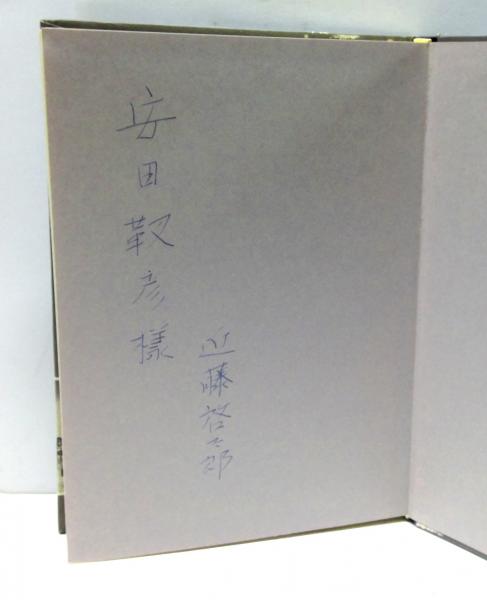 安田靫彦様
近藤啓太郎